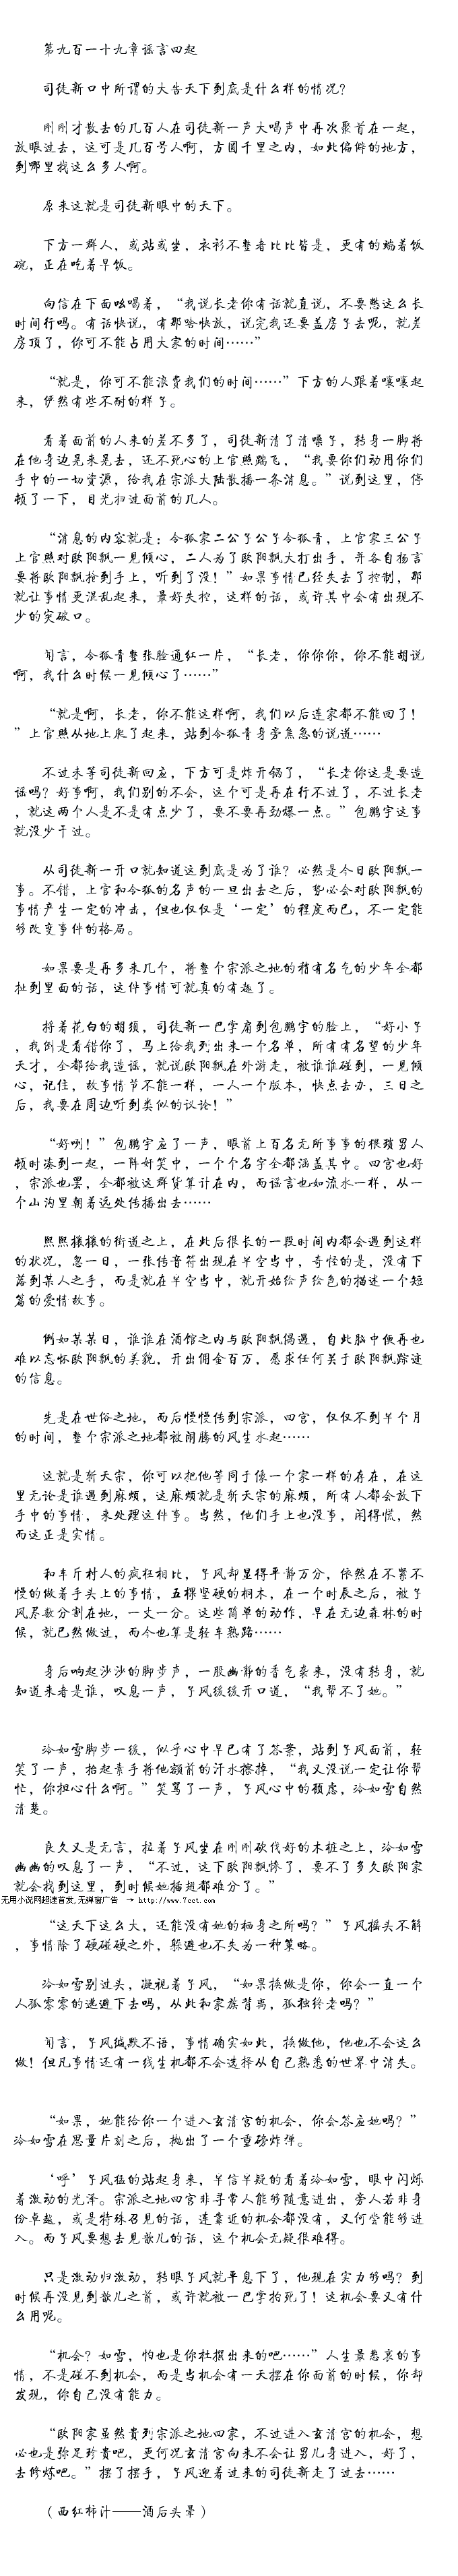 第九百一十九章谣言四起
司徒新口中所谓的大告天下到底是什么样的情况?
刚刚才散去的几百人在司徒新一声大喝声中再次聚首在一起,
放眼过去,这可是几百号人啊,方圆千里之内,如此偏僻的地方,
到哪里找这么多人啊。
原来这就是司徒新眼中的天下。
下方一群人,或站或坐,衣衫不整者比比皆是,更有的端着饭
碗,正在吃着早饭。
向信在下面吆喝着,“我说长老你有话就直说,不要憋这么长
时间行吗。有话快说,有那啥快放,说完我还要盖房子去呢,就差
房顶了,你可不能占用大家的时间……”
“就是,你可不能浪费我们的时间……”下方的人跟着嚷嚷起
来,俨然有些不耐的样子。
看着面前的人来的差不多了,司徒新清了清嗓子,转身一脚将
在他身边晃来晃去,还不死心的上官熙踹飞,“我要你们动用你们
手中的一切资源,给我在宗派大陆散播一条消息。”说到这里,停
顿了一下,目光扫过面前的几人。
“消息的内容就是:令狐家二公子公子令狐青,上官家三公子
上官熙对欧阳飘一见倾心,二人为了欧阳飘大打出手,并各自扬言
要将欧阳飘抢到手上,听到了没!”如果事情已经失去了控制,那
就让事情更混乱起来,最好失控,这样的话,或许其中会有出现不
少的突破口。
闻言,令狐青整张脸通红一片,“长老,你你你,你不能胡说
啊,我什么时候一见倾心了……”
“就是啊,长老,你不能这样啊,我们以后连家都不能回了!
”上官熙从地上爬了起来,站到令狐青身旁焦急的说道……
不过未等司徒新回应,下方可是炸开锅了,“长老你这是要造
谣吗?好事啊,我们别的不会,这个可是再在行不过了,不过长老
,就这两个人是不是有点少了,要不要再劲爆一点。”包鹏宇这事
就没少干过。
从司徒新一开口就知道这到底是为了谁?必然是今日欧阳飘一
事。不错,上官和令狐的名声的一旦出去之后,势必会对欧阳飘的
事情产生一定的冲击,但也仅仅是‘一定’的程度而已,不一定能
够改变事件的格局。
如果要是再多来几个,将整个宗派之地的稍有名气的少年全都
扯到里面的话,这件事情可就真的有趣了。
捋着花白的胡须,司徒新一巴掌扇到包鹏宇的脸上,“好小子
,我倒是看错你了,马上给我列出来一个名单,所有有名望的少年
天才,全都给我造谣,就说欧阳飘在外游走,被谁谁碰到,一见倾
心,记住,故事情节不能一样,一人一个版本,快点去办,三日之
后,我要在周边听到类似的议论!”
“好咧!”包鹏宇应了一声,眼前上百名无所事事的猥琐男人
顿时凑到一起,一阵奸笑中,一个个名字全都涵盖其中。四宫也好
,宗派也罢,全都被这群货算计在内,而谣言也如流水一样,从一
个山沟里朝着远处传播出去……
熙熙攘攘的街道之上,在此后很长的一段时间内都会遇到这样
的状况,忽一日,一张传音符出现在半空当中,奇怪的是,没有下
落到某人之手,而是就在半空当中,就开始绘声绘色的描述一个短
篇的爱情故事。
例如某某日,谁谁在酒馆之内与欧阳飘偶遇,自此脑中便再也
难以忘怀欧阳飘的美貌,开出佣金百万,愿求任何关于欧阳飘踪迹
的信息。
先是在世俗之地,而后慢慢传到宗派,四宫,仅仅不到半个月
的时间,整个宗派之地都被闹腾的风生水起……
这就是斩天宗,你可以把他等同于像一个家一样的存在,在这
里无论是谁遇到麻烦,这麻烦就是斩天宗的麻烦,所有人都会放下
手中的事情,来处理这件事。当然,他们手上也没事,闲得慌,然
而这正是实情。
和车斤村人的疯狂相比,子风却显得平静万分,依然在不紧不
慢的做着手头上的事情,五棵坚硬的桐木,在一个时辰之后,被子
风尽数分割在地,一丈一分。这些简单的动作,早在无边森林的时
候,就已然做过,而今也算是轻车熟路……
身后响起沙沙的脚步声,一股幽静的香气袭来,没有转身,就
知道来者是谁,叹息一声,子风缓缓开口道,“我帮不了她。”
冷如雪脚步一缓,似乎心中早已有了答案,站到子风面前,轻
笑了一声,抬起素手将他额前的汗水擦掉,“我又没说一定让你帮
忙,你担心什么啊。”笑骂了一声,子风心中的顾虑,冷如雪自然
清楚。
良久又是无言,拉着子风坐在刚刚砍伐好的木桩之上,冷如雪
幽幽的叹息了一声,“不过,这下欧阳飘惨了,要不了多久欧阳家
就会找到这里,到时候她插翅都难分了。”
无用小说网超速首发,无弹窗广告 → http://www.7cct.com
“这天下这么大,还能没有她的栖身之所吗?”子风摇头不解
,事情除了硬碰硬之外,躲避也不失为一种策略。
冷如雪别过头,凝视着子风,“如果换做是你,你会一直一个
人孤零零的逃避下去吗,从此和家族背离,孤独终老吗?”
闻言,子风缄默不语,事情确实如此,换做他,他也不会这么
做!但凡事情还有一线生机都不会选择从自己熟悉的世界中消失。
“如果,她能给你一个进入玄清宫的机会,你会答应她吗?”
冷如雪在思量片刻之后,抛出了一个重磅炸弹。
‘呼’子风猛的站起身来,半信半疑的看着冷如雪,眼中闪烁
着激动的光泽。宗派之地四宫非寻常人能够随意进出,旁人若非身
份卓越,或是特殊召见的话,连靠近的机会都没有,又何尝能够进
入。而子风要想去见歆儿的话,这个机会无疑很难得。
只是激动归激动,转眼子风就平息下了,他现在实力够吗?到
时候再没见到歆儿之前,或许就被一巴掌拍死了!这机会要又有什
么用呢。
“机会?如雪,怕也是你杜撰出来的吧……”人生最悲哀的事
情,不是碰不到机会,而是当机会有一天摆在你面前的时候,你却
发现,你自己没有能力。
“欧阳家虽然贵列宗派之地四家,不过进入玄清宫的机会,想
必也是弥足珍贵吧,更何况玄清宫向来不会让男儿身进入,好了,
去修炼吧。”摆了摆手,子风迎着过来的司徒新走了过去……
(西红柿汁——酒后头晕)